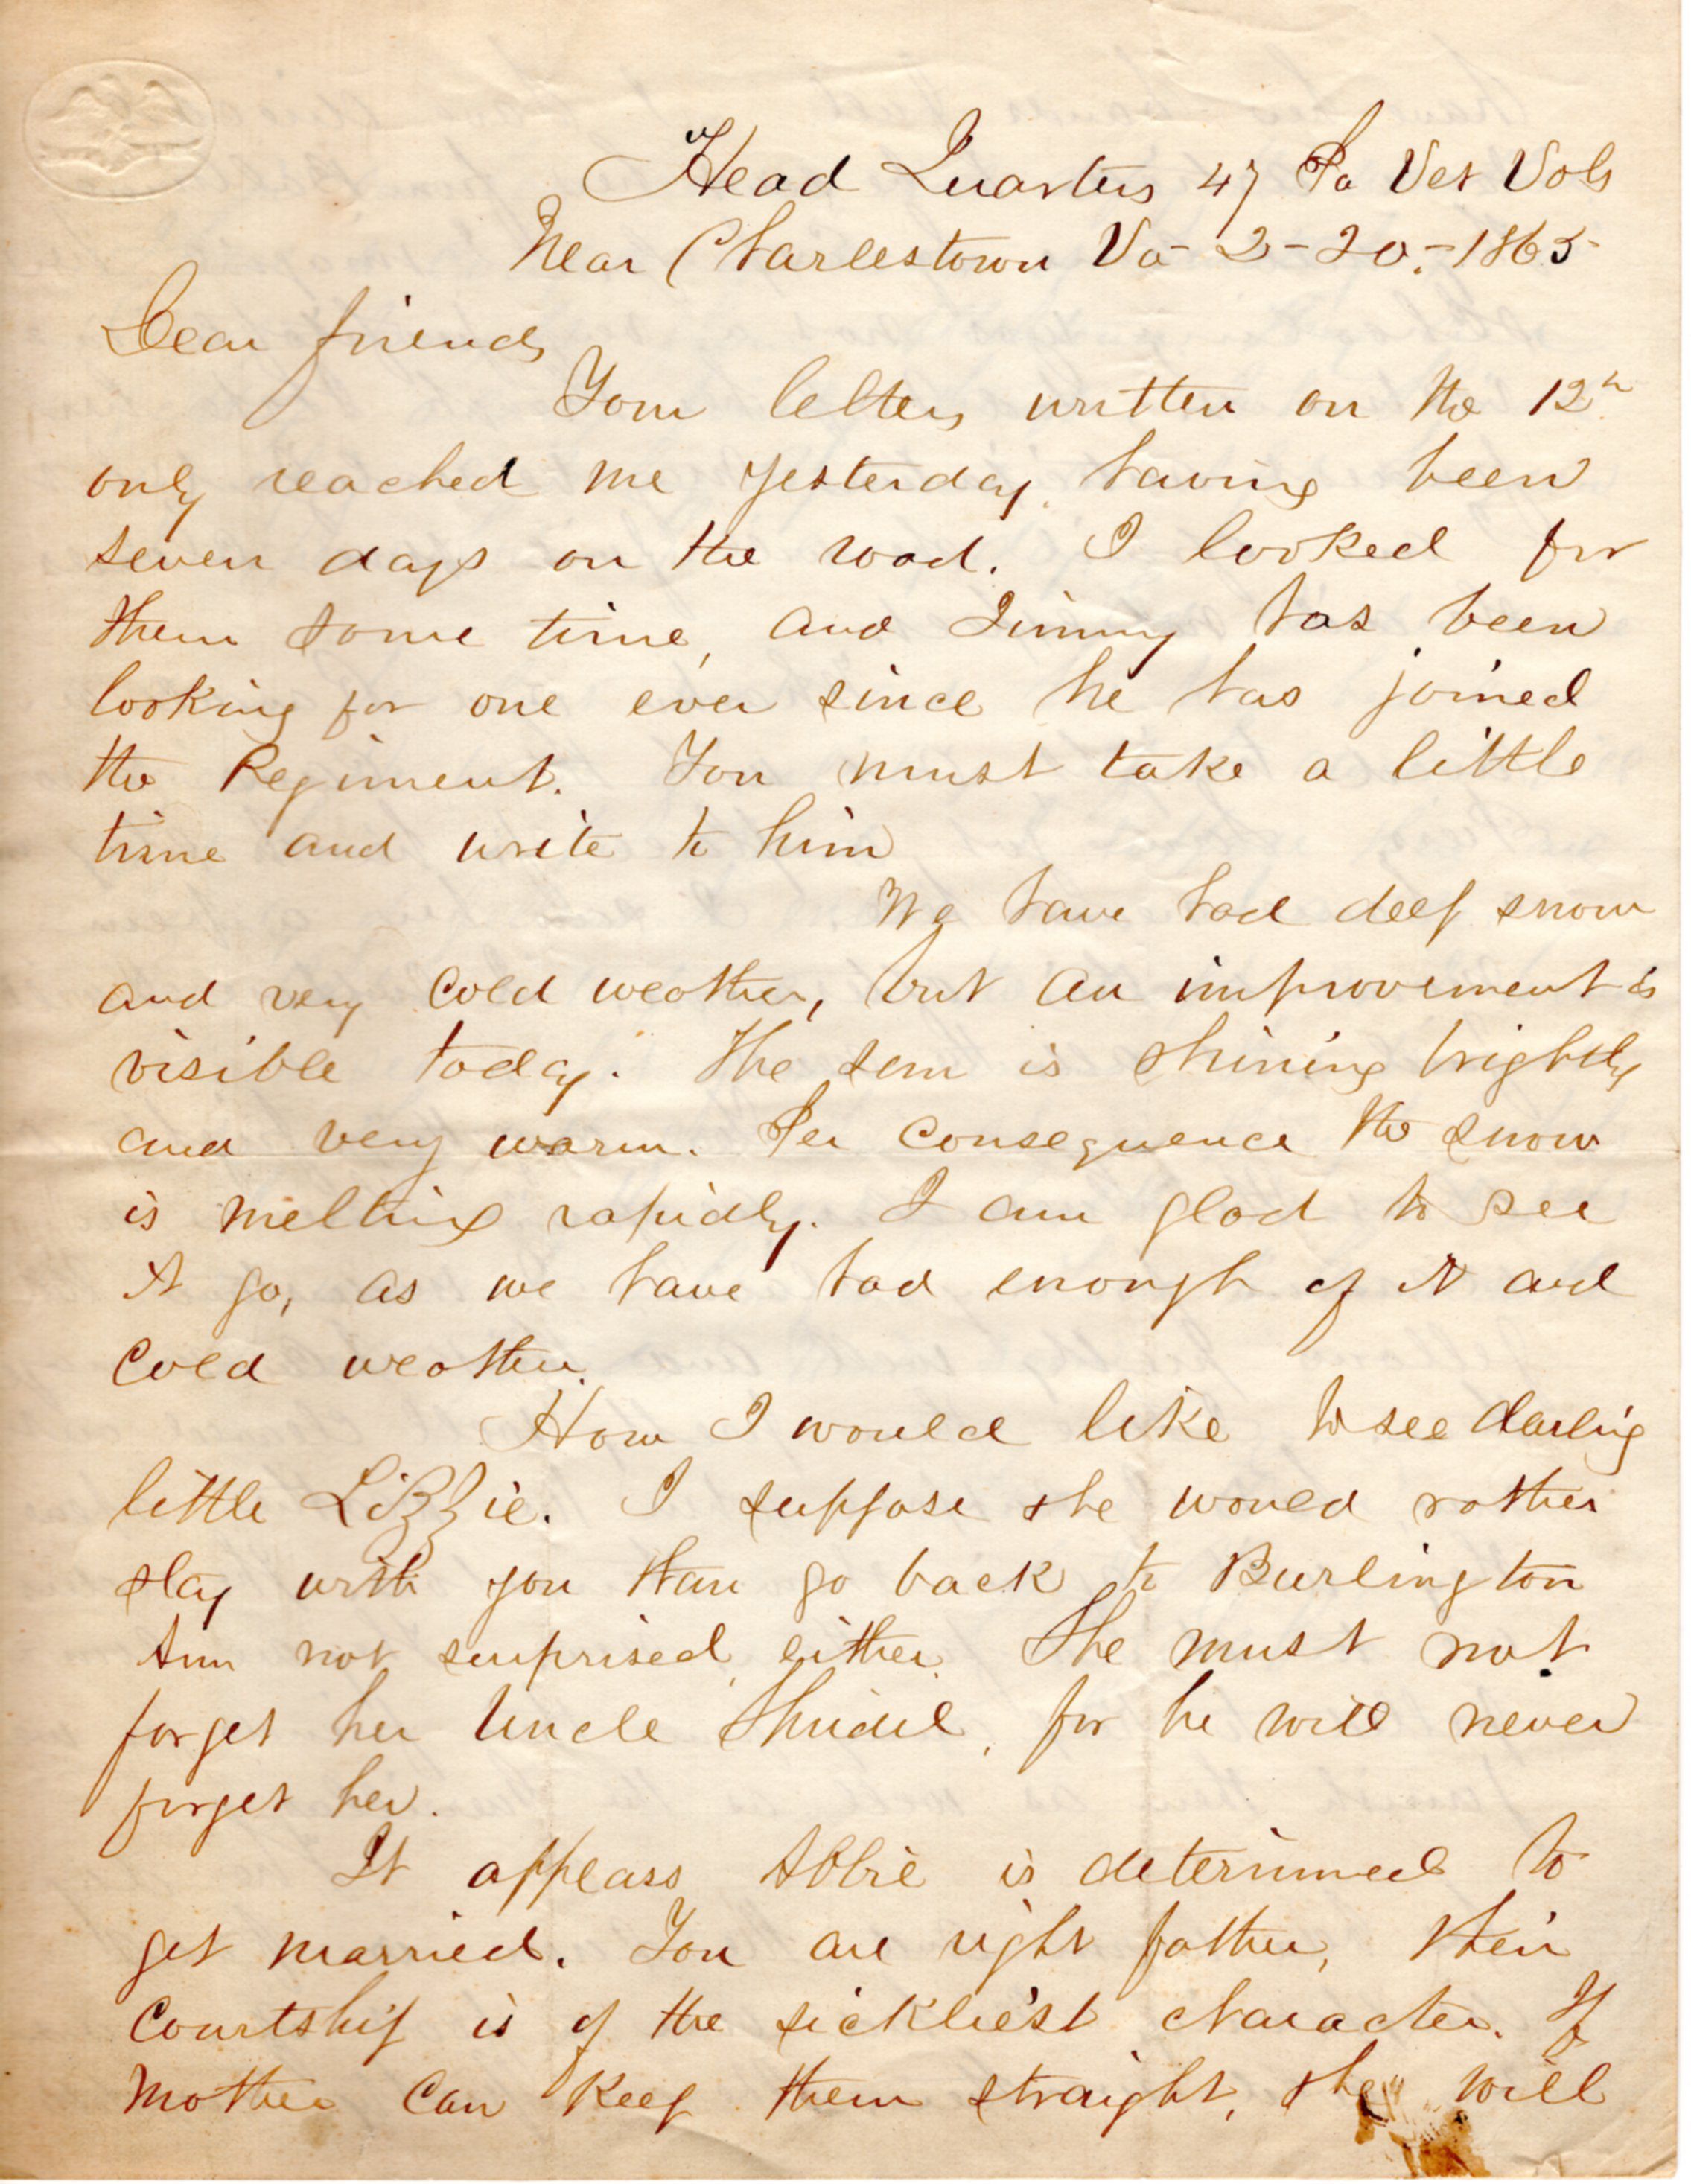 Head Quarters 47 Pa Vet Vols
Near Charlestown Va - 2-20.-1865
Dear friends
Your letters written on the 12th
only reached me yesterday, having been
seven days on the road. I looked for
them some time, and Jimmy has been
looking for one ever since he has joined
the Regiment. You must take a little
time and write to him
We have had deep snow
and very cold weather, but an improvement is
visible today. The sun is shining brightly
and very warm. Per consequence the snow
is melting rapidly. I am glad to see
it go, as we have had enough of it and
cold weather.
How I would like to see darling
little Lizzie. I suppose she would rather
stay with you than go back to Burlington
Am not surprised, either. She must not
forget her Uncle , for he will never
forget her.
It appears Abbie is determined to
get married. You are right father, their
courtship is of the sickliest character. If
Mother can keep them straight, she will